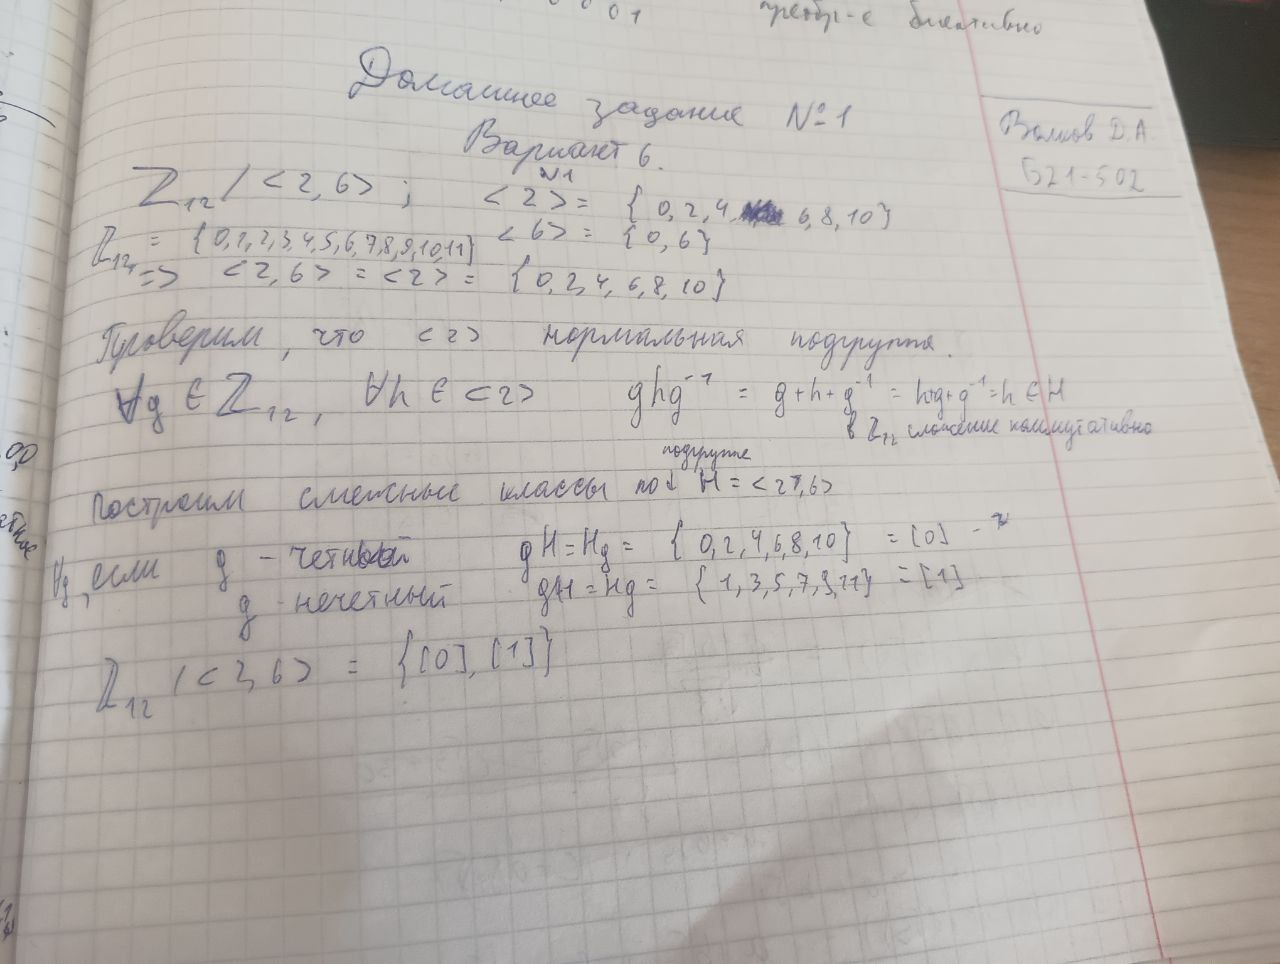 0 0 0 1
биективно
Домашнее задание №1
Вариант 6.
Волков Д.А.
Б21-502
№1
Z₁₂ / <2, 6> ; <2> = {0, 2, 4, 6, 8, 10}
Z₁₂ = {0,1,2,3,4,5,6,7,8,9,10,11} <6> = {0, 6}
=> <2, 6> = <2> = {0, 2, 4, 6, 8, 10}
Проверим, что <2> нормальная подгруппа.
∀g ∈ Z₁₂, ∀h ∈ <2> ghg⁻¹ = g+h+g⁻¹ = h+g+g⁻¹ = h ∈ H
в Z₁₂ сложение коммутативно
Построим смежные классы по подгруппе H = <2, 6>
∀g, если g - четный gH = Hg = {0, 2, 4, 6, 8, 10} = [0]
g - нечетный gH = Hg = {1, 3, 5, 7, 9, 11} = [1]
Z₁₂ / <2, 6> = {[0], [1]}